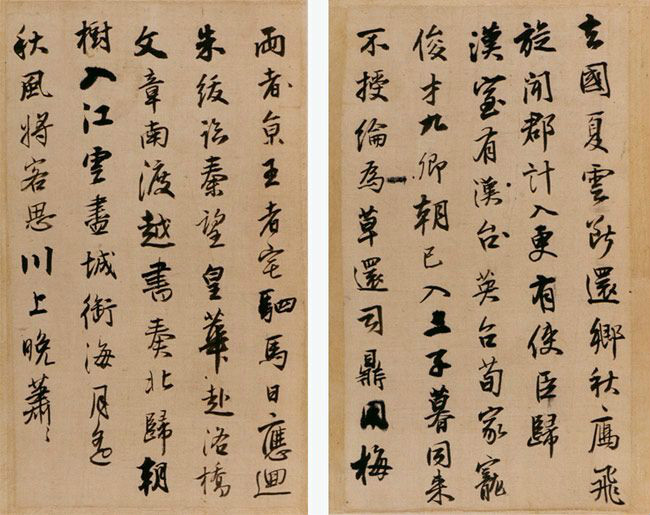 去國夏雲斷還鄉秋鴈飛
旋聞郡計入更有使臣歸
漢室有漢台英台荀家寵
俊才九卿朝已入三子暮同来
不授綸為草還司鼎用梅
两者京王者宅駟馬日應迴
朱紱詣秦望皇華赴洛橋
文章南渡越書奏北歸朝
樹入江雲盡城銜海月遙
秋風將客思川上晚蕭〻